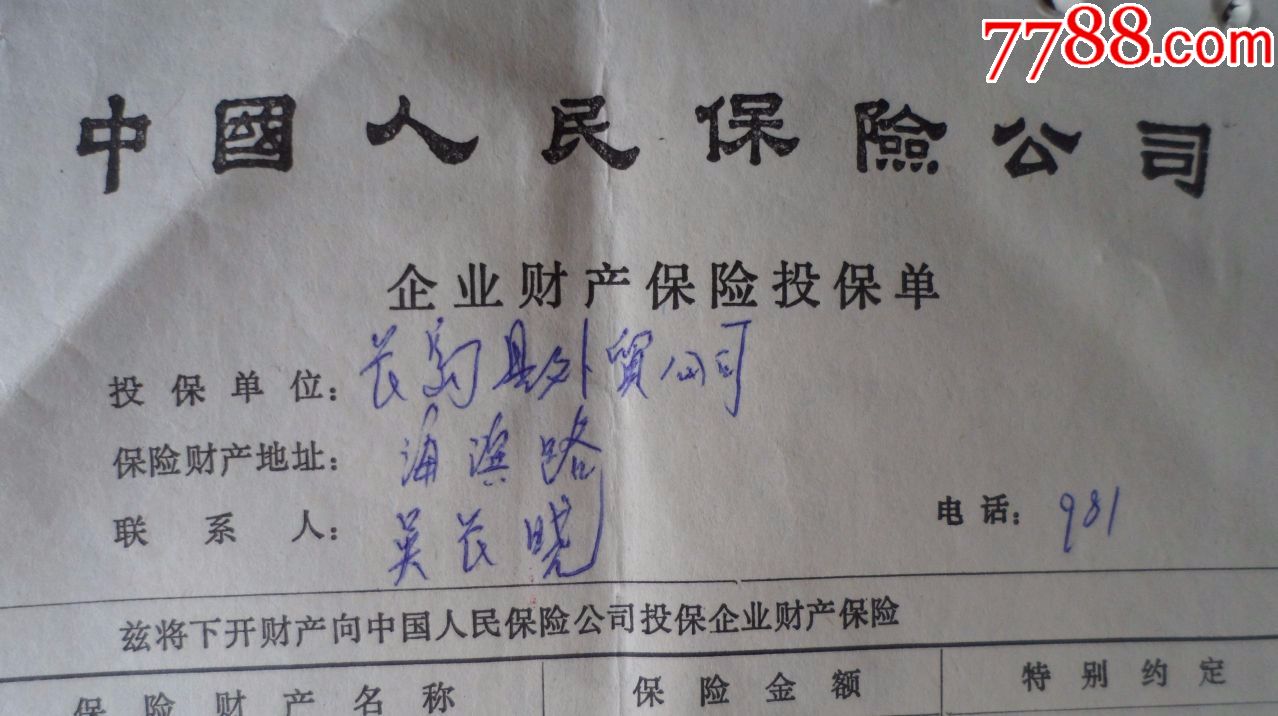 7788.com
中國人民保險公司
企业财产保险投保单
投保单位：长岛县外贸公司
保险财产地址：海滨路
联系人：吴长晓 电话：981
兹将下开财产向中国人民保险公司投保企业财产保险
保险财产名称 保险金额 特别约定